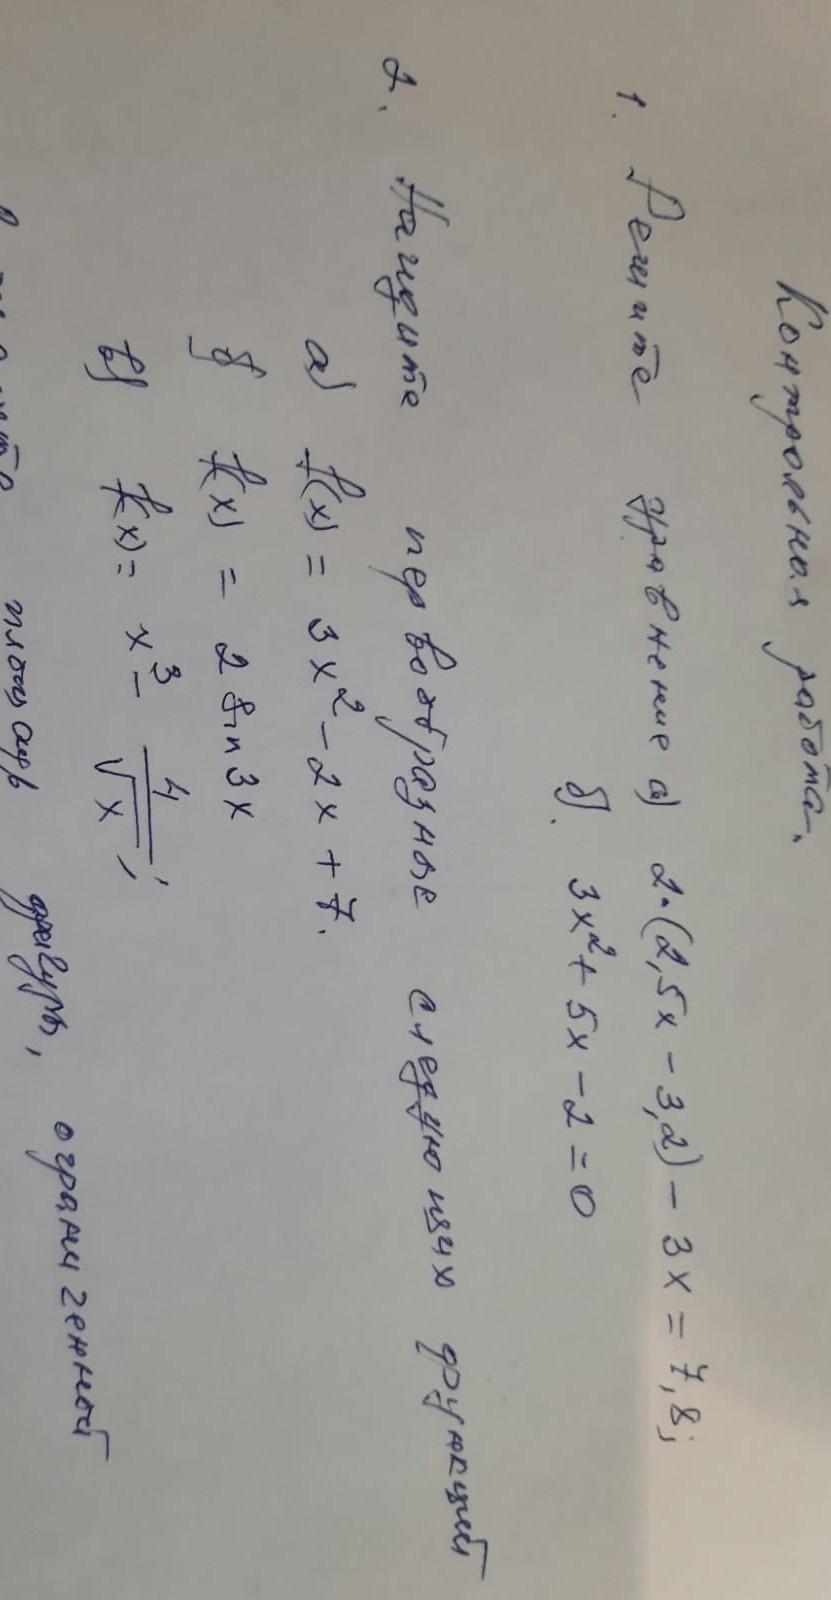 Контрольная работа.
1. Решите уравнение а) 2·(2,5x – 3,2) – 3x = 7,8;
б). 3x² + 5x – 2 = 0
2. Найдите первообразные следующих функций
а) f(x) = 3x² – 2x + 7.
б) f(x) = 2 sin 3x
в) f(x) = x³ – 4/√x;
площадь фигуры, ограниченной